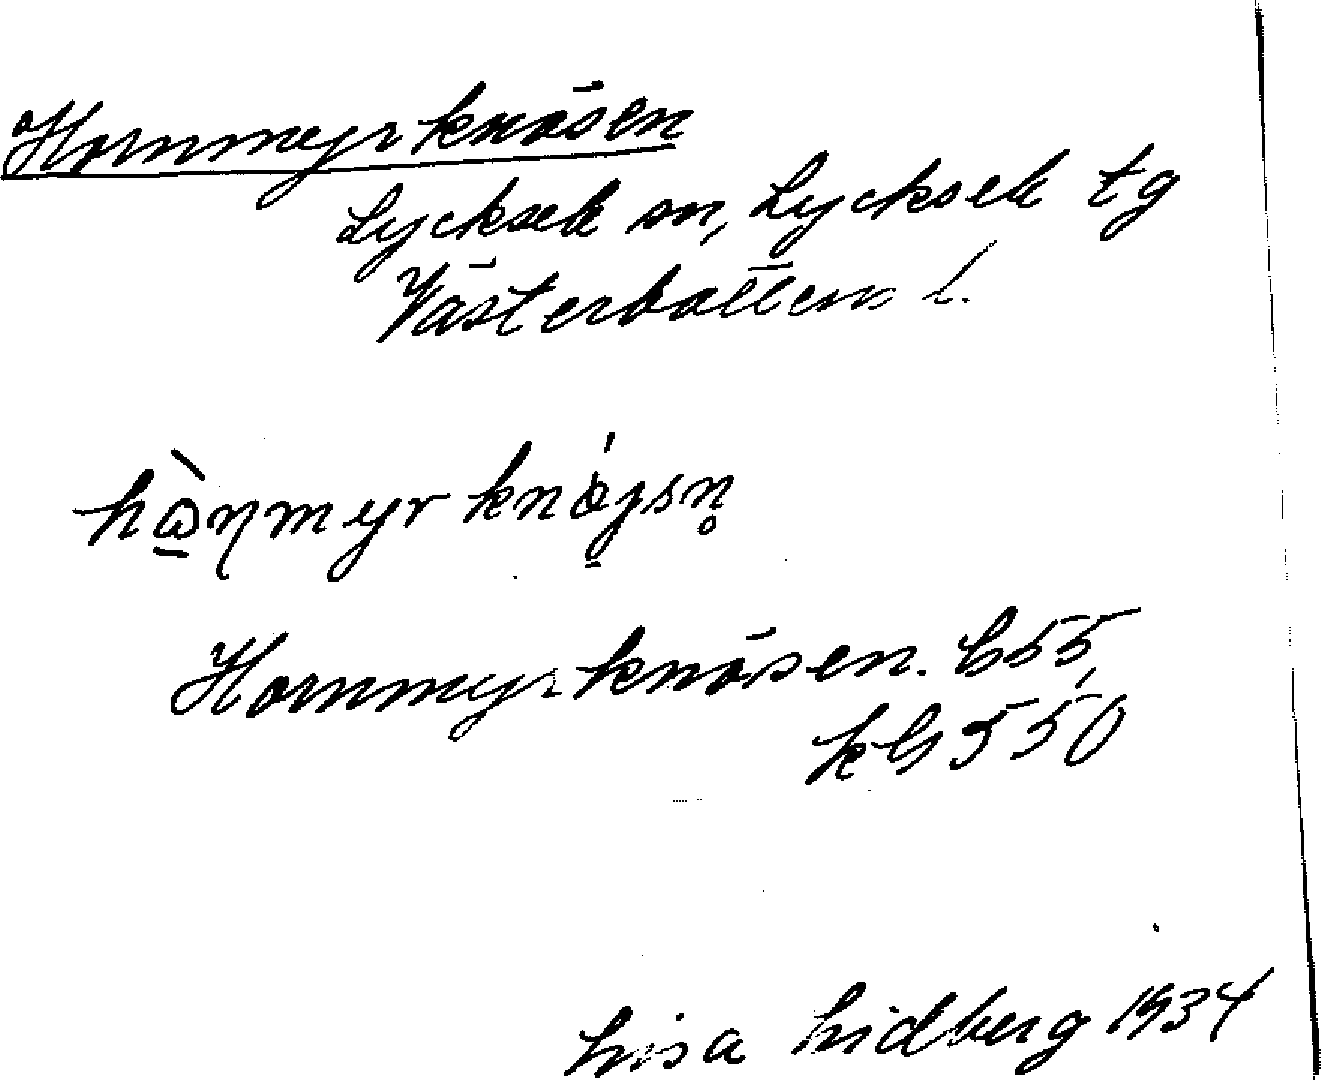 Hornmyrknösen
Lycksele sn, Lycksele tg
Västerbottens l.
Hornmyrknösen. 655,
kG 550
Lisa Lidberg 1934